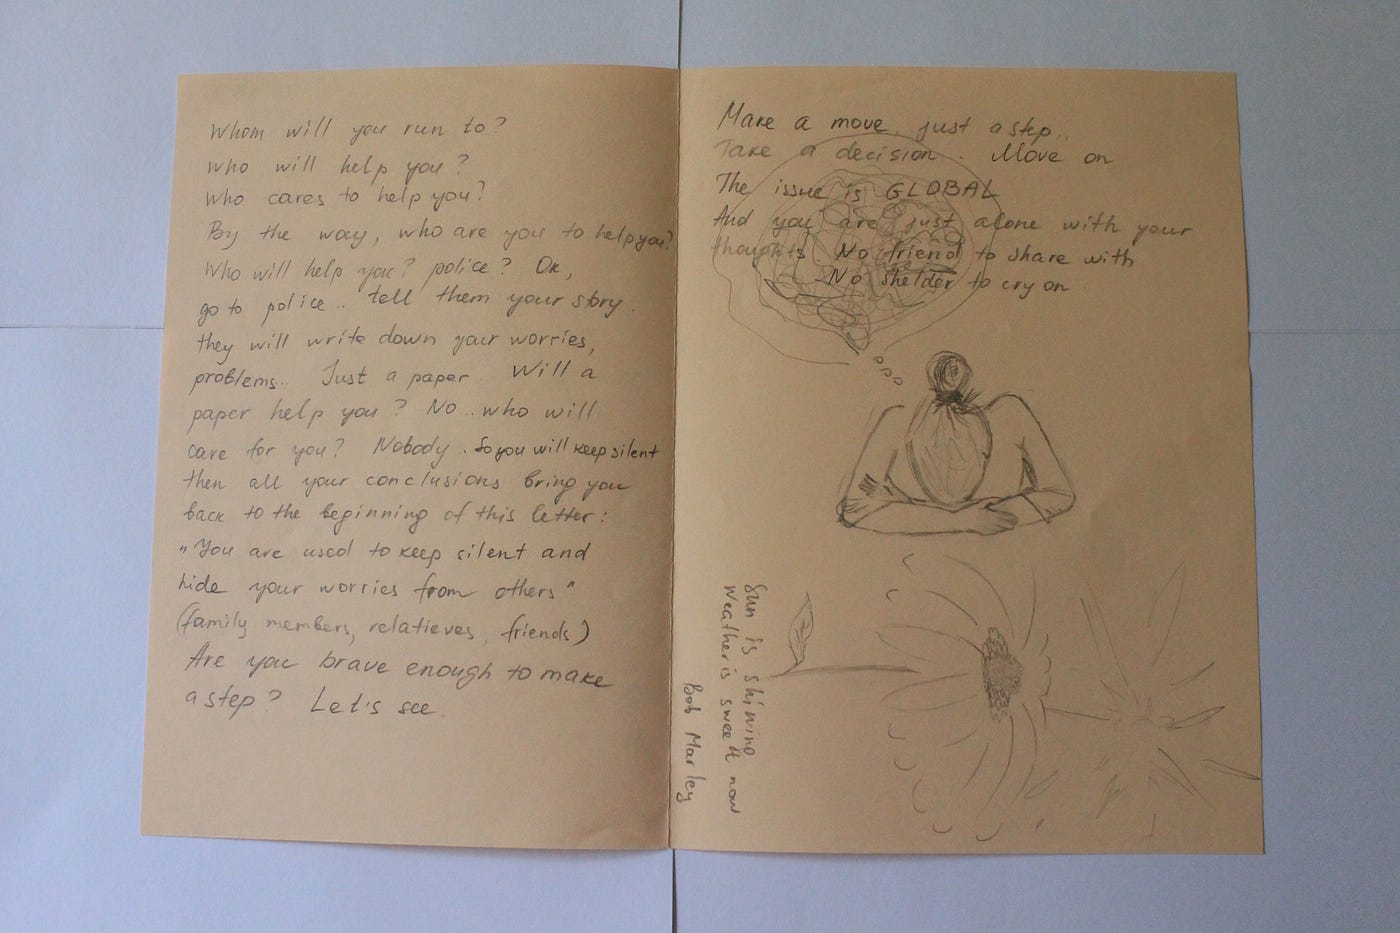 Whom will you run to?
Who will help you?
Who cares to help you?
By the way, who are you to help you?
Who will help you? police? Ok,
go to police.. tell them your story.
they will write down your worries,
problems.. Just a paper.. Will a
paper help you? No.. who will
care for you? Nobody. So you will keep silent
then all your conclusions bring you
back to the beginning of this letter:
"You are used to keep silent and
hide your worries from others"
(family members, relatieves, friends)
Are you brave enough to make
a step? Let's see.
Make a move, just a step..
Take a decision. Move on
The issue is GLOBAL
And you are just alone with your
thoughts. No friend to share with
No shelder to cry on
Sun is shining
Weather is sweet now
Bob Marley